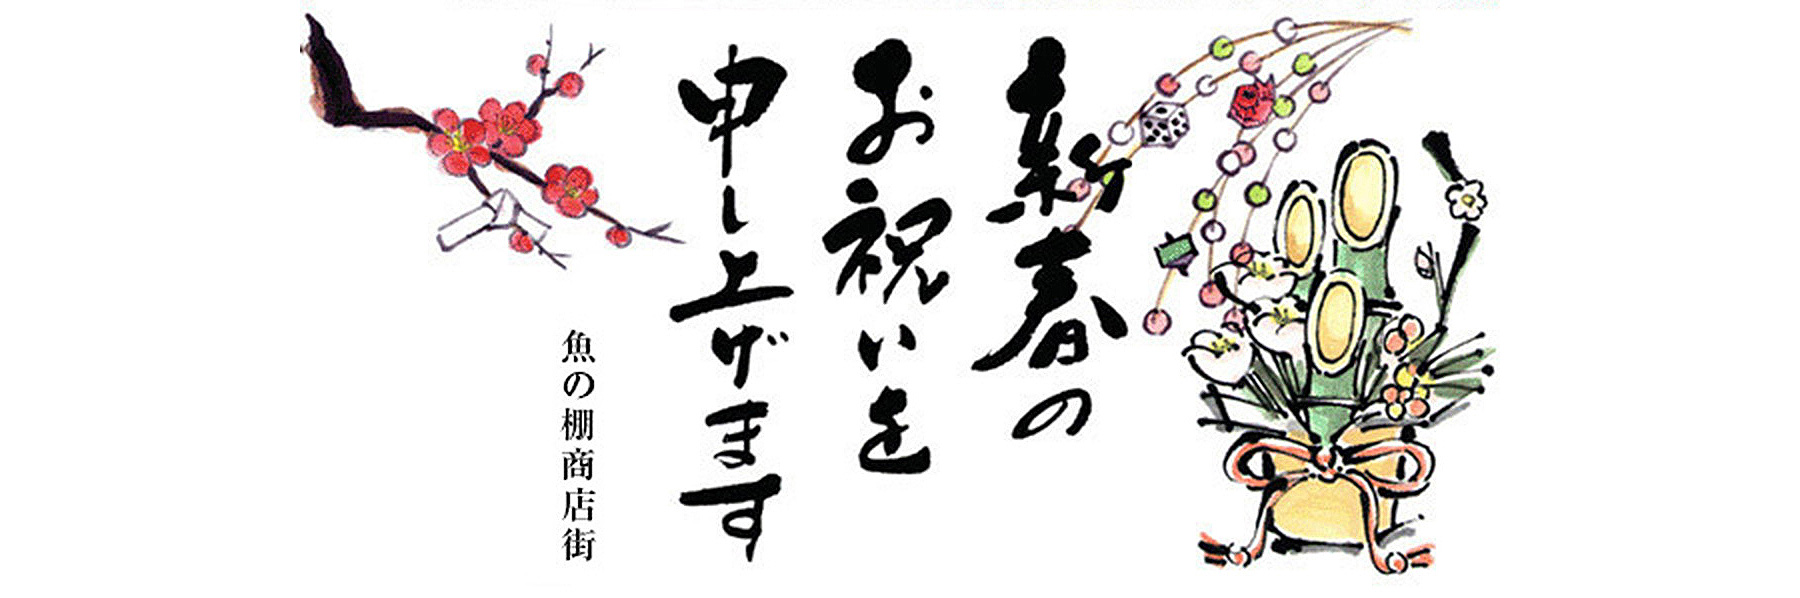 新春の
お祝いを
申し上げます
魚の棚商店街